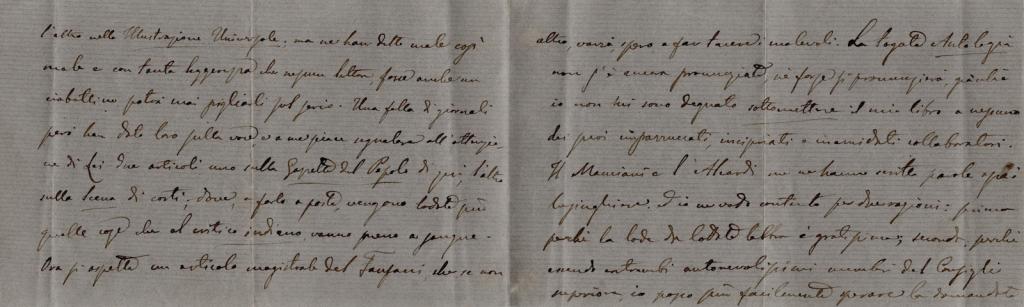 l'altro nella Illustrazione Universale; ma ne han detto male così
male e con tanta che nessun lettore forse anche un
potrà mai pigliarli sul serio. Una folla di giornali
però han dato loro sulla voce e a me piace segnalare all'attenzio-
ne di Lei due articoli uno sulla Gazzetta del Popolo di qui, l'altro
sulla Scena di costì, dove, a farlo a posta, vengono lodate più
quelle cose che al critico vanno meno a sangue.
Ora si aspetta un articolo magistrale del Fanfani che se non
altro, varrà spero a far tacere i malevoli. La togata Antologia
non s'è ancora pronunziata, nè forse si pronunzierà giacchè
io non mi sono degnato sottomettere il mio libro a nessuno
dei suoi imparruccati, incipriati e collaboratori.
Il Mamiani e l'Aleardi me ne hanno scritto parole assai
lusinghiere, ed io ne vado contento per due ragioni: prima
perchè la lode da lodato labbro è gratissima; seconda, perchè
essendo entrambi autorevolissimi membri del Consiglio
superiore, io posso più facilmente sperare la domandata